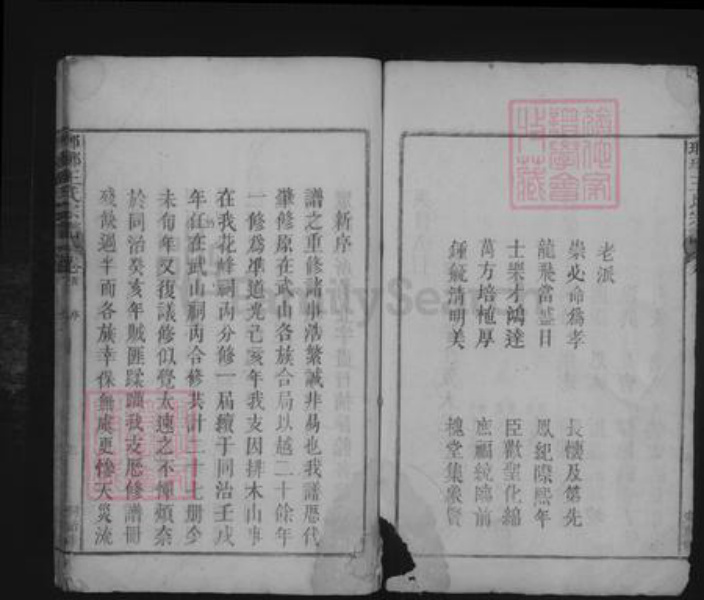 老派
崇必命為孝 長懷及第先
龍飛當盛日 鳳紀際熙年
士樂才鴻達 臣歡聖化綿
萬方培植厚 福統
鍾毓清明美 槐堂集象賢
新序
譜之重修諸事浩繁誠非易也我譜歷代
肇修原在武山各族合局以越二十餘年
一修為準道光己亥年我支因排木山事
在我花峰祠內分修一屆續于同治壬戌
年在武山祠內合修共計二十七册今
未旬年又復議修似覺太速之不憚煩奈
於同治癸亥年賊匪蹂躪我支歷修譜册
殘毀過半而各族幸保無虞更慘天災流
琅琊王氏宗譜
FamilySearch